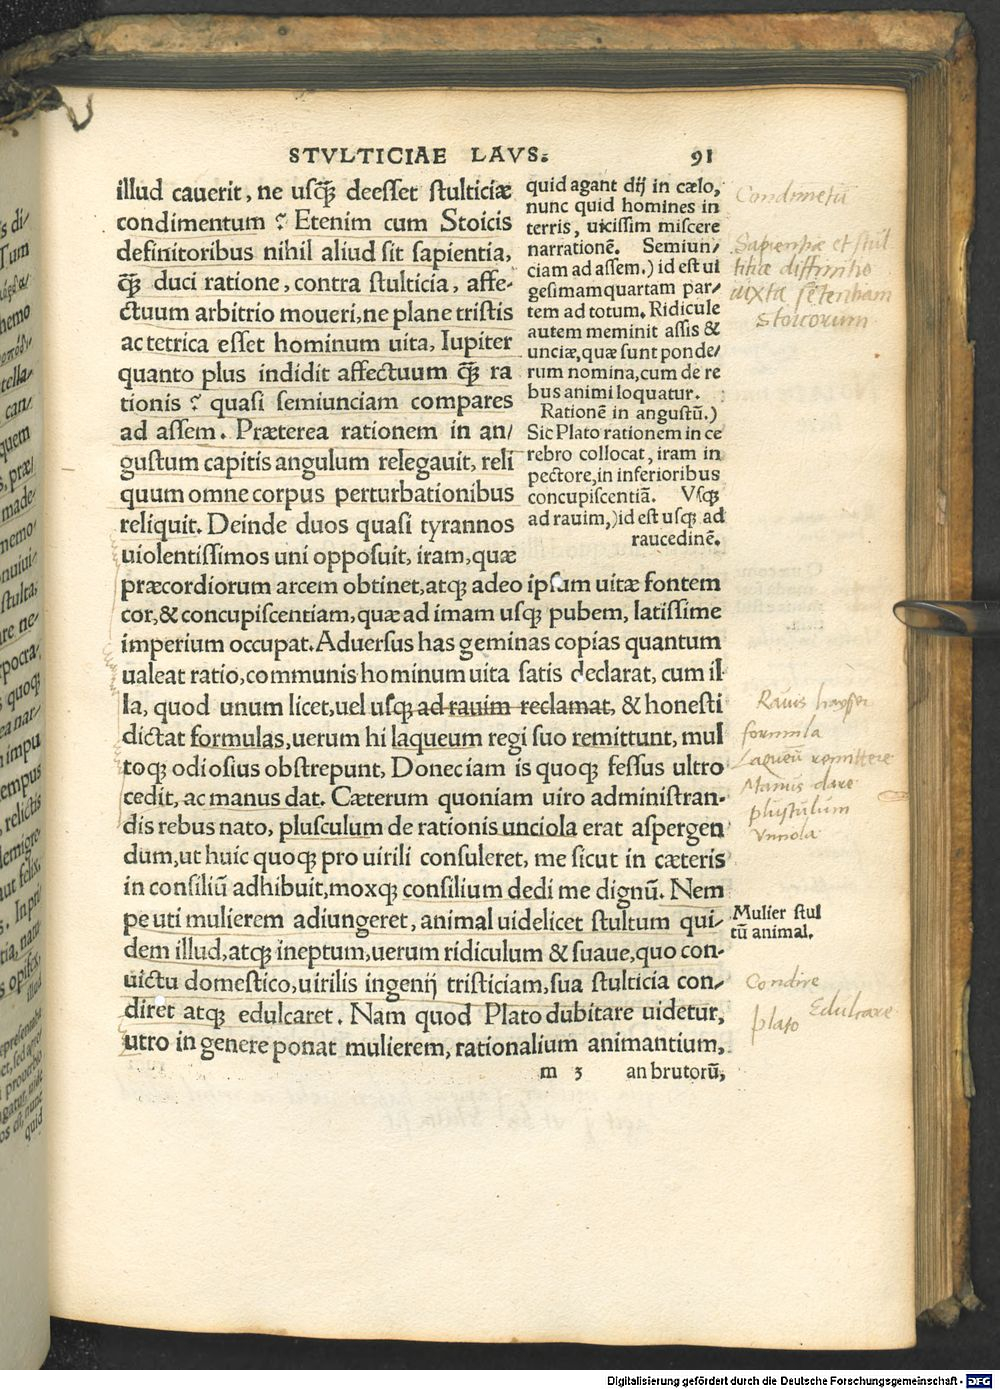 STVLTICIAE LAVS. 91
illud cauerit, ne usq̃ȝ deesset stulticiæ
condimentum ? Etenim cum Stoicis
definitoribus nihil aliud sit sapientia,
q̃ȝ duci ratione, contra stulticia, affe-
ctuum arbitrio moueri, ne plane tristis
ac tetrica esset hominum uita, Iupiter
quanto plus indidit affectuum q̃ȝ ra
tionis ? quasi semiunciam compares
ad assem. Præterea rationem in an/
gustum capitis angulum relegauit, reli
quum omne corpus perturbationibus
reliquit. Deinde duos quasi tyrannos
uiolentissimos uni opposuit, iram, quæ
præcordiorum arcem obtinet, atqȝ adeo ipsum uitæ fontem
cor, & concupiscentiam, quæ ad imam usqȝ pubem, latissime
imperium occupat. Aduersus has geminas copias quantum
ualeat ratio, communis hominum uita satis declarat, cum il-
la, quod unum licet, uel usqȝ ad rauim reclamat, & honesti
dictat formulas, uerum hi laqueum regi suo remittunt, mul
toqȝ odiosius obstrepunt, Donec iam is quoqȝ fessus ultro
cedit, ac manus dat. Cæterum quoniam uiro administran-
dis rebus nato, plusculum de rationis unciola erat aspergen
dum, ut huic quoqȝ pro uirili consuleret, me sicut in cæteris
in consiliũ adhibuit, moxqȝ consilium dedi me dignũ. Nem
pe uti mulierem adiungeret, animal uidelicet stultum qui-
dem illud, atqȝ ineptum, uerum ridiculum & suaue, quo con-
uictu domestico, uirilis ingenij tristiciam, sua stulticia con/
diret atqȝ edulcaret. Nam quod Plato dubitare uidetur,
utro in genere ponat mulierem, rationalium animantium,
m 3 an brutorũ,
quid agant dij in cælo,
nunc quid homines in
terris, utcissim miscere
narrationẽ. Semiun/
ciam ad assem.) id est ui
gesimam quartam par/
tem ad totum. Ridicule
autem meminit assis &
unciæ, quæ sunt ponde/
rum nomina, cum de re
bus animi loquatur.
Rationẽ in angustũ.)
Sic Plato rationem in ce
rebro collocat, iram in
pectore, in inferioribus
concupiscentiã. Vsqȝ
ad rauim,) id est usqȝ ad
raucedinẽ.
Condimetũ
Sapientiæ et stul
titiæ diffinitio
iuxta sẽtentiam
Stoicorum
Rauis
formula
Laqueũ remittere
Manus dare
plusculum
Vnciola
Mulier stul
tũ animal.
Condire
Edulcare
plato
Digitalisierung gefördert durch die Deutsche Forschungsgemeinschaft - DFG